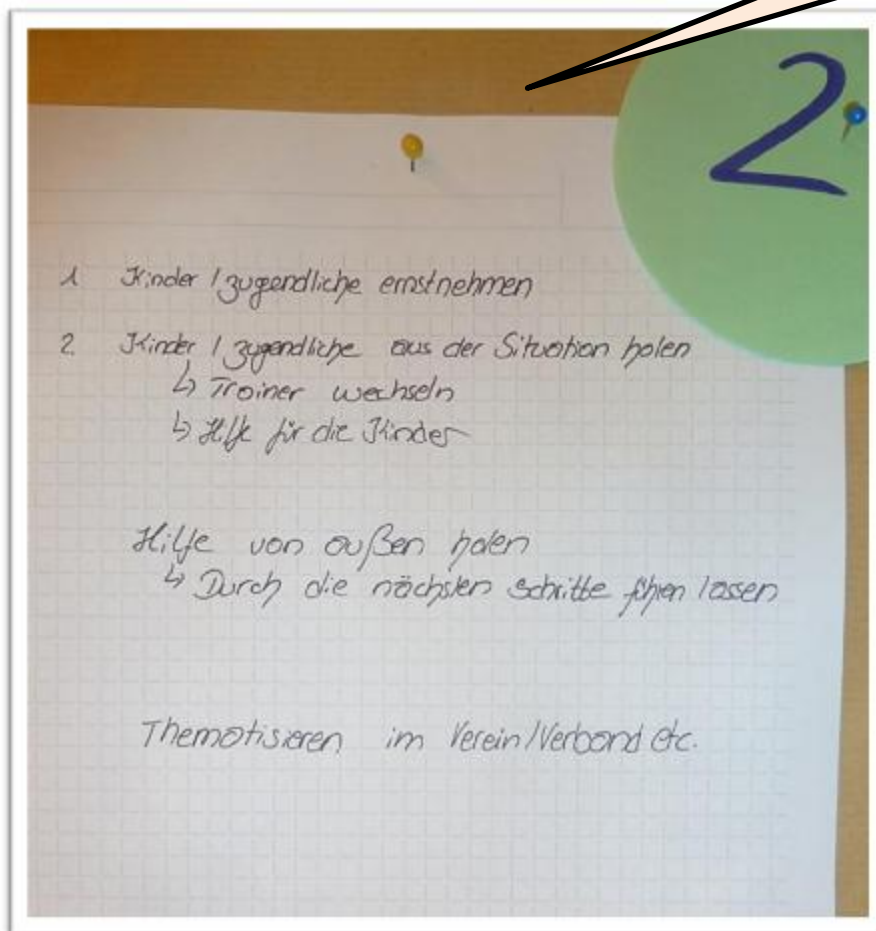 2
1 Kinder / Jugendliche ernstnehmen
2. Kinder / Jugendliche aus der Situation holen
↳ Trainer wechseln
↳ Hilfe für die Kinder
Hilfe von außen holen
↳ Durch die nächsten Schritte führen lassen
Thematisieren im Verein/Verband etc.